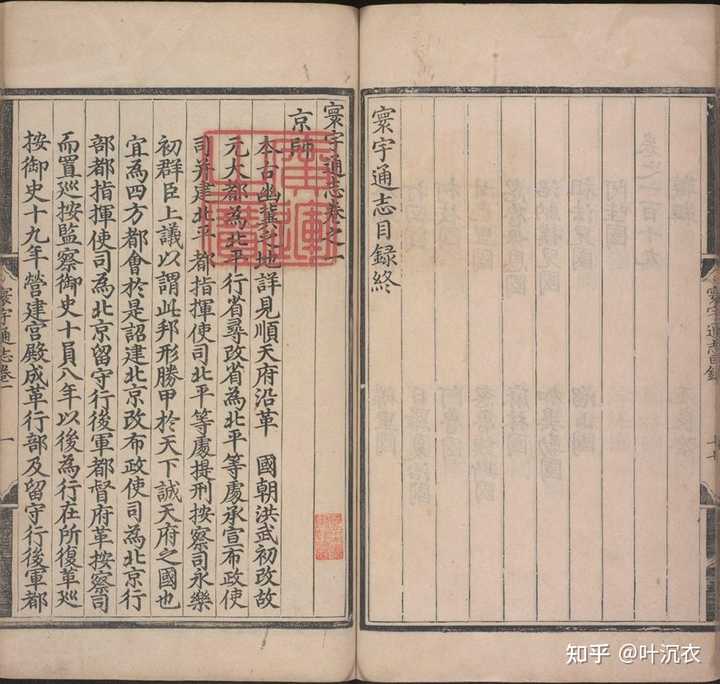 寰宇通志目錄終
寰宇通志卷之一
京師
本古幽冀之地詳見順天府沿革 國朝洪武初改故
元大都為北平行省尋改省為北平等處承宣布政使
司并建北平都指揮使司北平等處提刑按察司永樂
初群臣上議以謂此邦形勝甲於天下誠天府之國也
宜為四方都會於是詔建北京改布政使司為北京行
部都指揮使司為北京留守行後軍都督府革按察司
而置巡按監察御史十員八年以後為行在所復革巡
按御史十九年營建宮殿成革行部及留守行後軍都
寰宇通志目錄
寰宇通志卷一
一
知乎 @叶沉衣